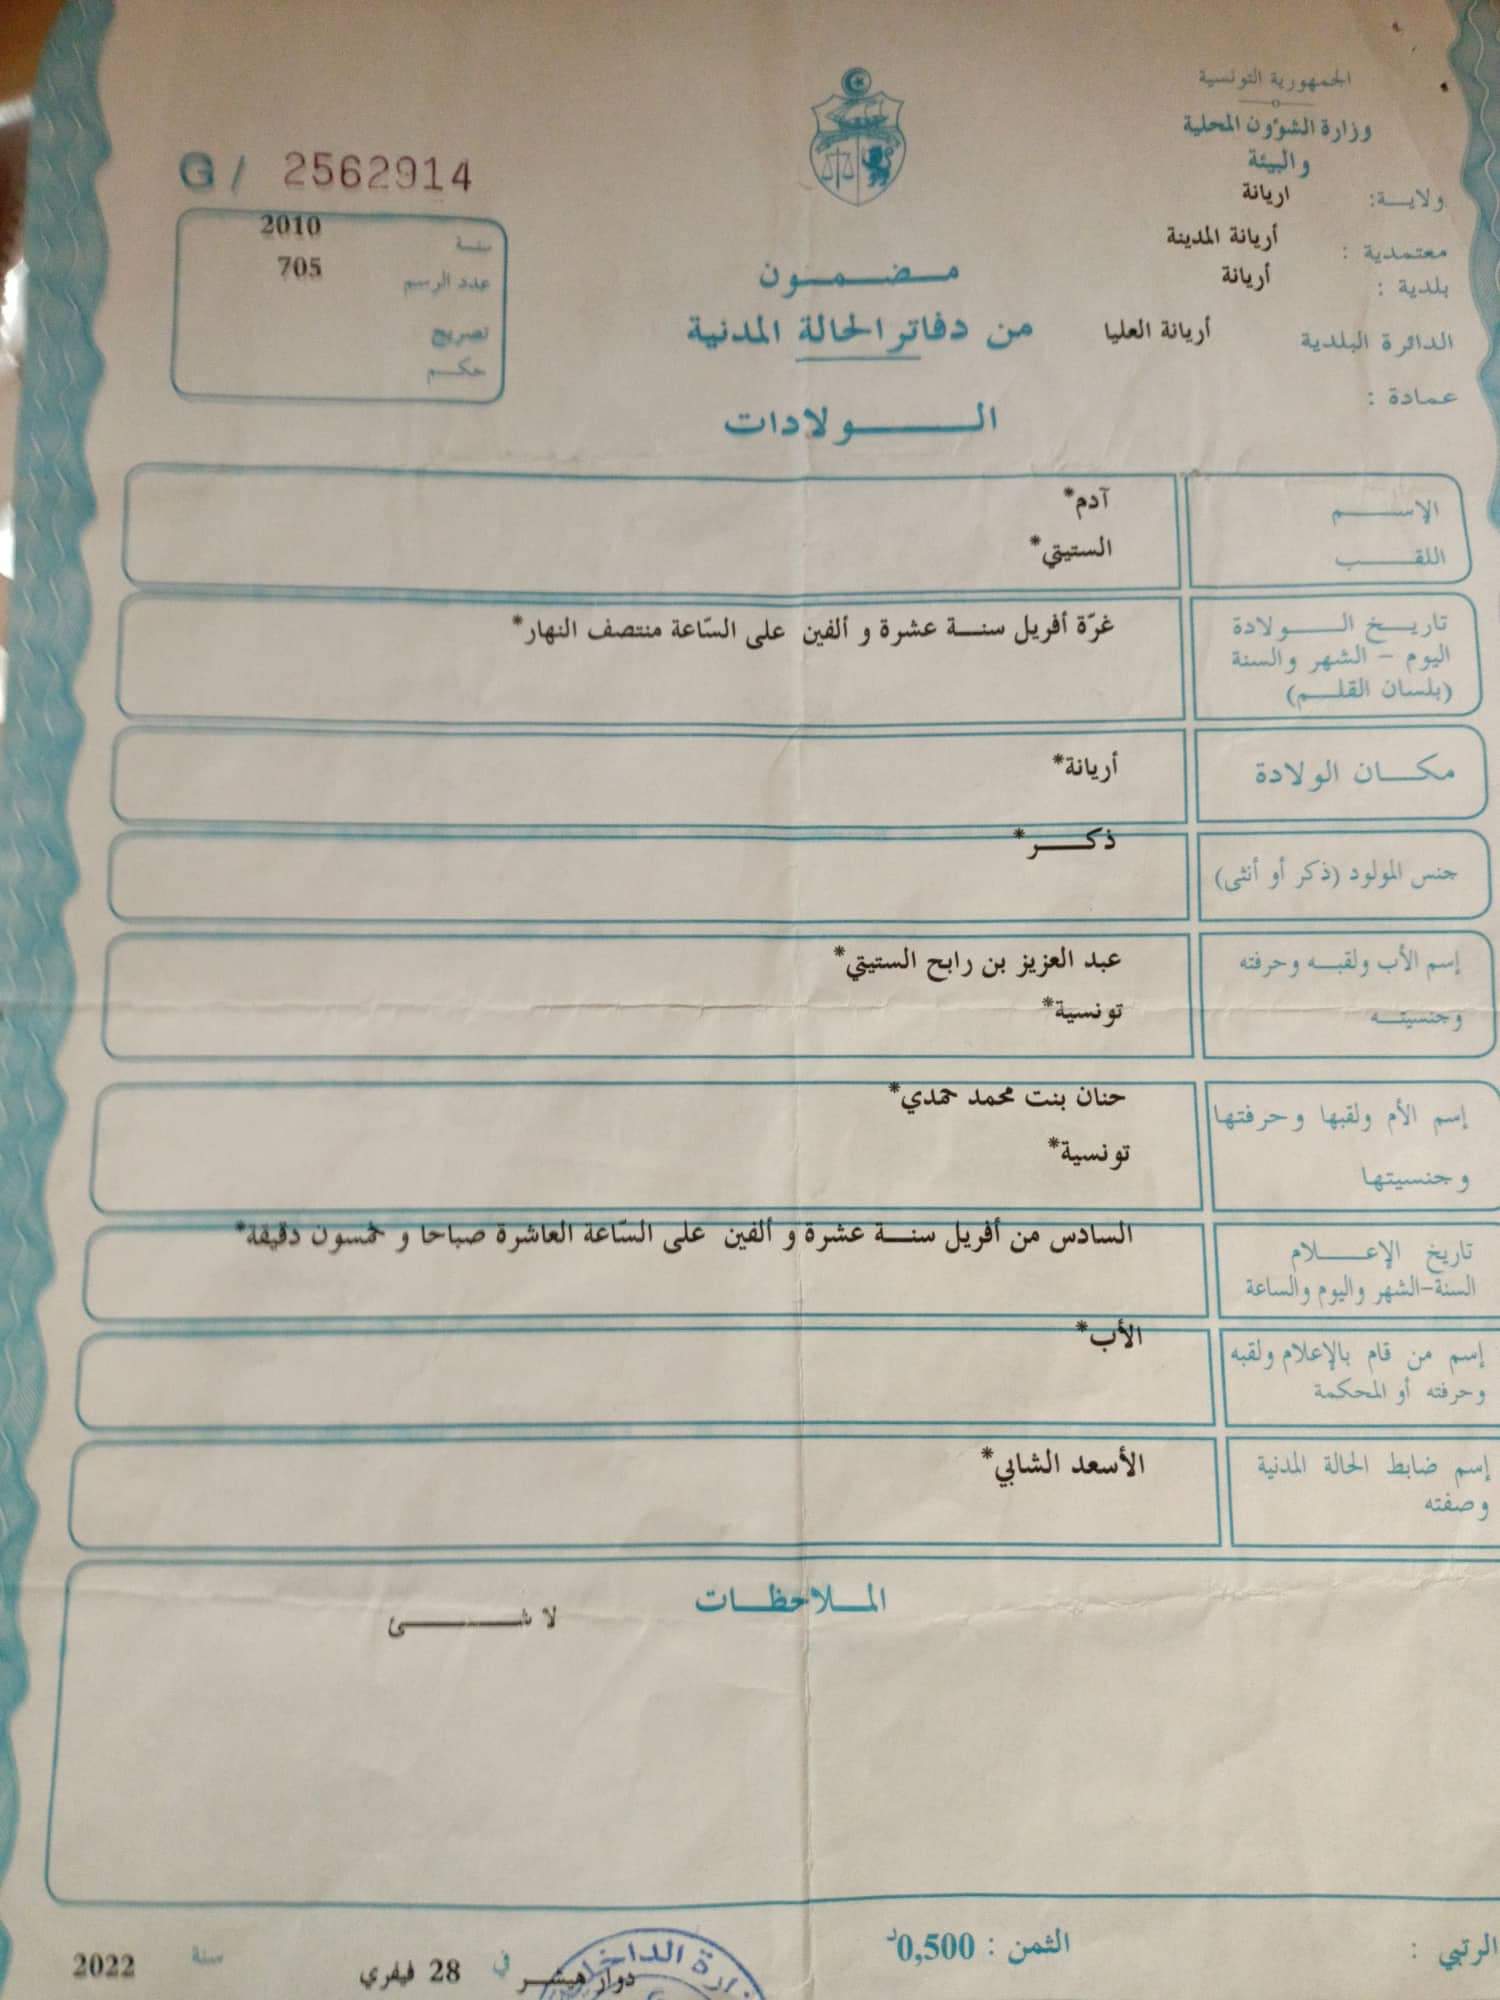 الجمهورية التونسية
وزارة الشؤون المحلية
والبيئة
ولايـــة: اريانة
معتمدية : أريانة المدينة
بلدية : أريانة
الدائرة البلدية أريانة العليا
عمادة :
G / 2562914
سنة 2010
عدد الرسم 705
تصريح
حكم
مـضـمـون
من دفاتر الحالة المدنية
الـــولادات
الإســـم آدم*
اللقـــب الستيتي*
تاريـخ الــولادة غرّة أفريل سنـــة عشرة و ألفين على السّاعة منتصف النهار*
اليوم - الشهر والسنة
(بلسان القلـم)
مكـــان الولادة أريانة*
جنس المولود (ذكر أو أنثى) ذكـــــر*
إسم الأب ولقبـه وحرفته عبد العزيز بن رابح الستيتي*
وجنسيتـه تونسية*
إسم الأم ولقبها وحرفتها حنان بنت محمد حمدي*
وجنسيتها تونسية*
تاريخ الإعــــلام السادس من أفريل سنـــة عشرة و ألفين على السّاعة العاشرة صباحا و خمسون دقيقة*
السنة-الشهر واليوم والساعة
إسم من قام بالإعلام ولقبه الأب*
وحرفته أو المحكمة
إسم ضابط الحالة المدنية الأسعد الشابي*
وصفته
المـلاحظـات
لا شـــــــئ
الرتبي :
الثمن : 0,500د
دوار هيشـــر في 28 فيفري سنة 2022